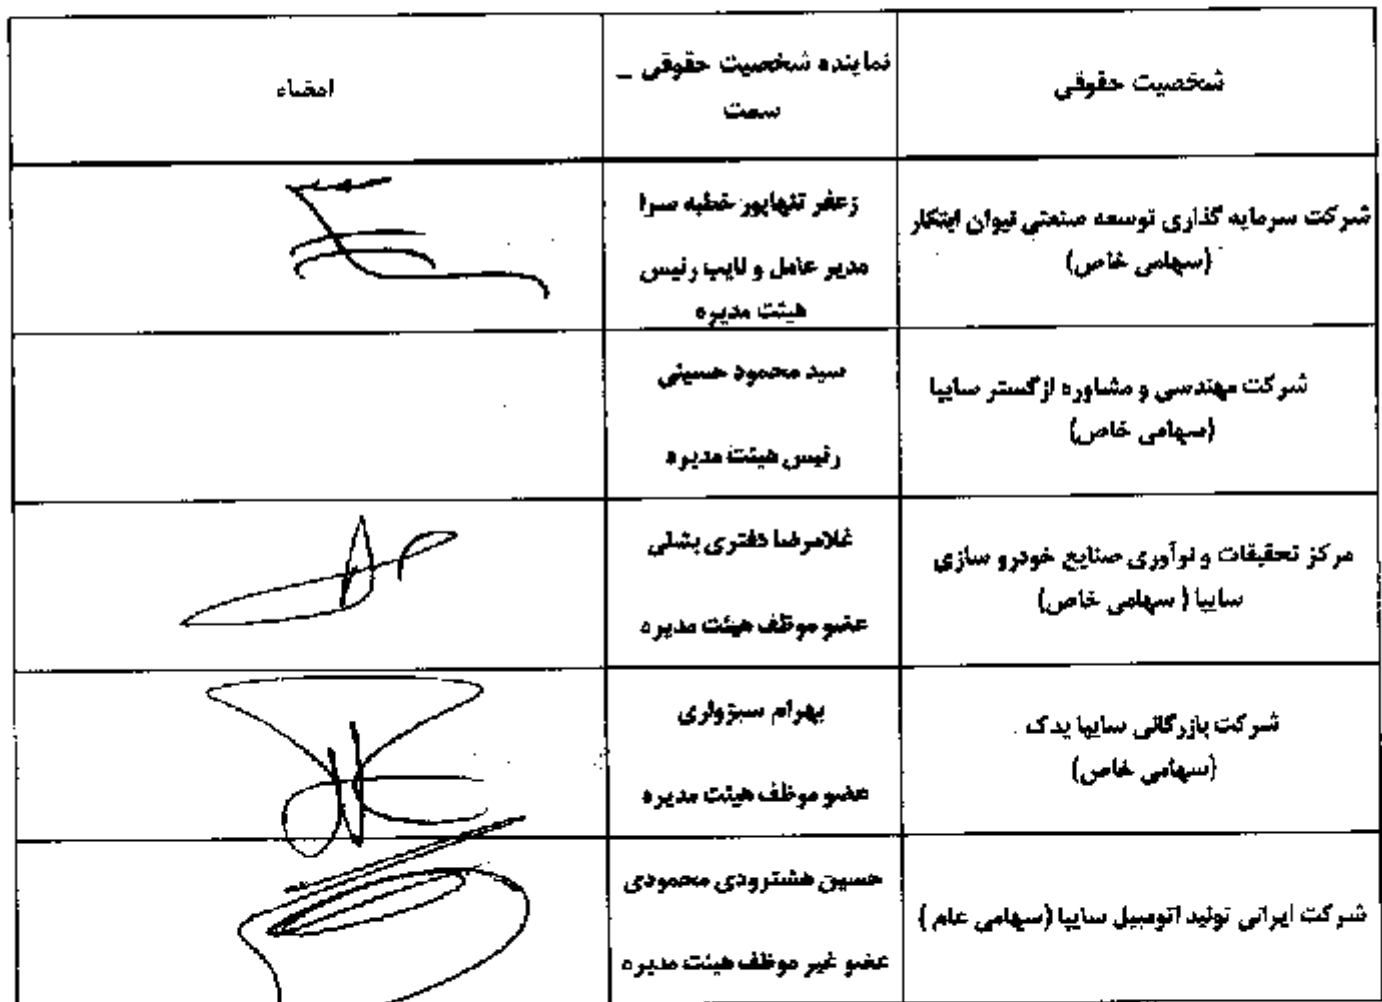 شخصیت حقوقی
نماینده شخصیت حقوقی –
سمت
امضاء
شرکت سرمایه گذاری توسعه صنعتی نیوان ابتکار
(سهامی خاص)
زعفر تنهاپور خطبه سرا
مدیر عامل و نایب رئیس
هیئت مدیره
شرکت مهندسی و مشاوره ازگستر سایپا
(سهامی خاص)
سید محمود حسینی
رئیس هیئت مدیره
مرکز تحقیقات و نوآوری صنایع خودرو سازی
سایپا ( سهامی خاص)
غلامرضا دفتری بشلی
عضو موظف هیئت مدیره
شرکت بازرگانی سایپا یدک
(سهامی خاص)
بهرام سبزواری
عضو موظف هیئت مدیره
شرکت ایرانی تولید اتومبیل سایپا (سهامی عام )
حسین هشترودی محمودی
عضو غیر موظف هیئت مدیره